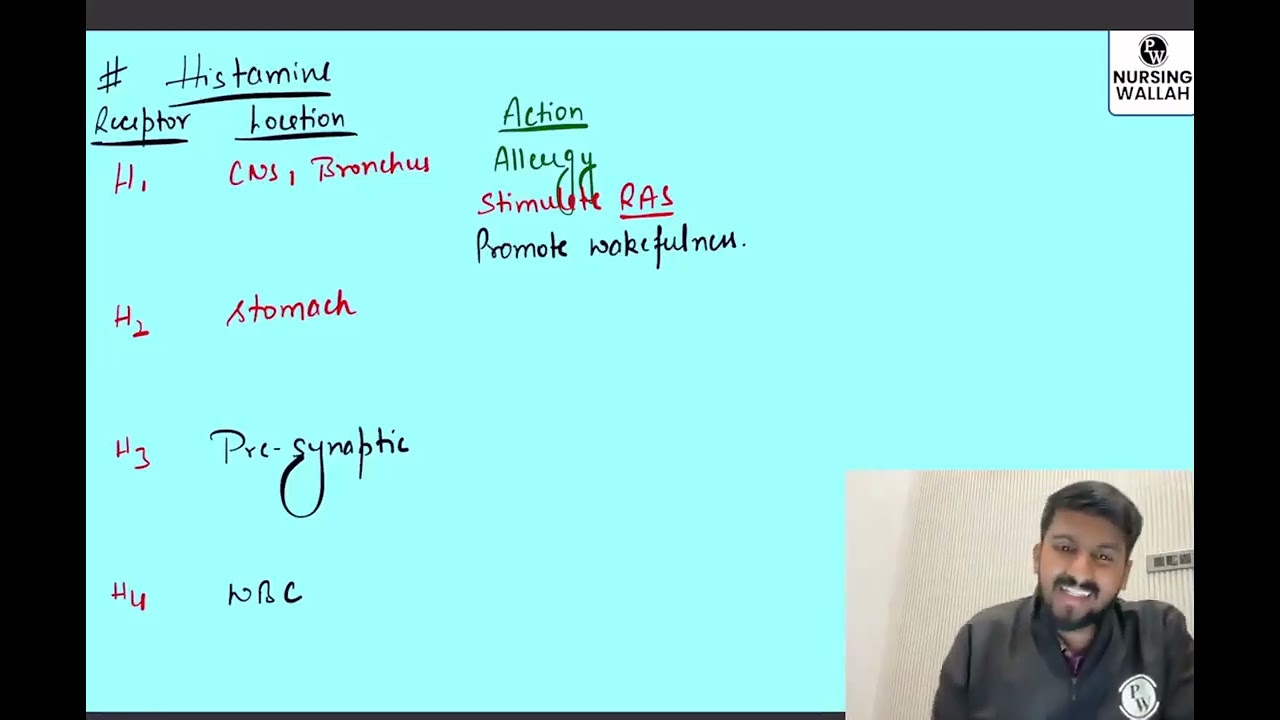 # Histamine
Receptor Location Action
H1 CNS, Bronchus Allergy
Stimulate RAS
Promote wakefulness.
H2 Stomach
H3 Pre-synaptic
H4 WBC
PW
NURSING
WALLAH
PW